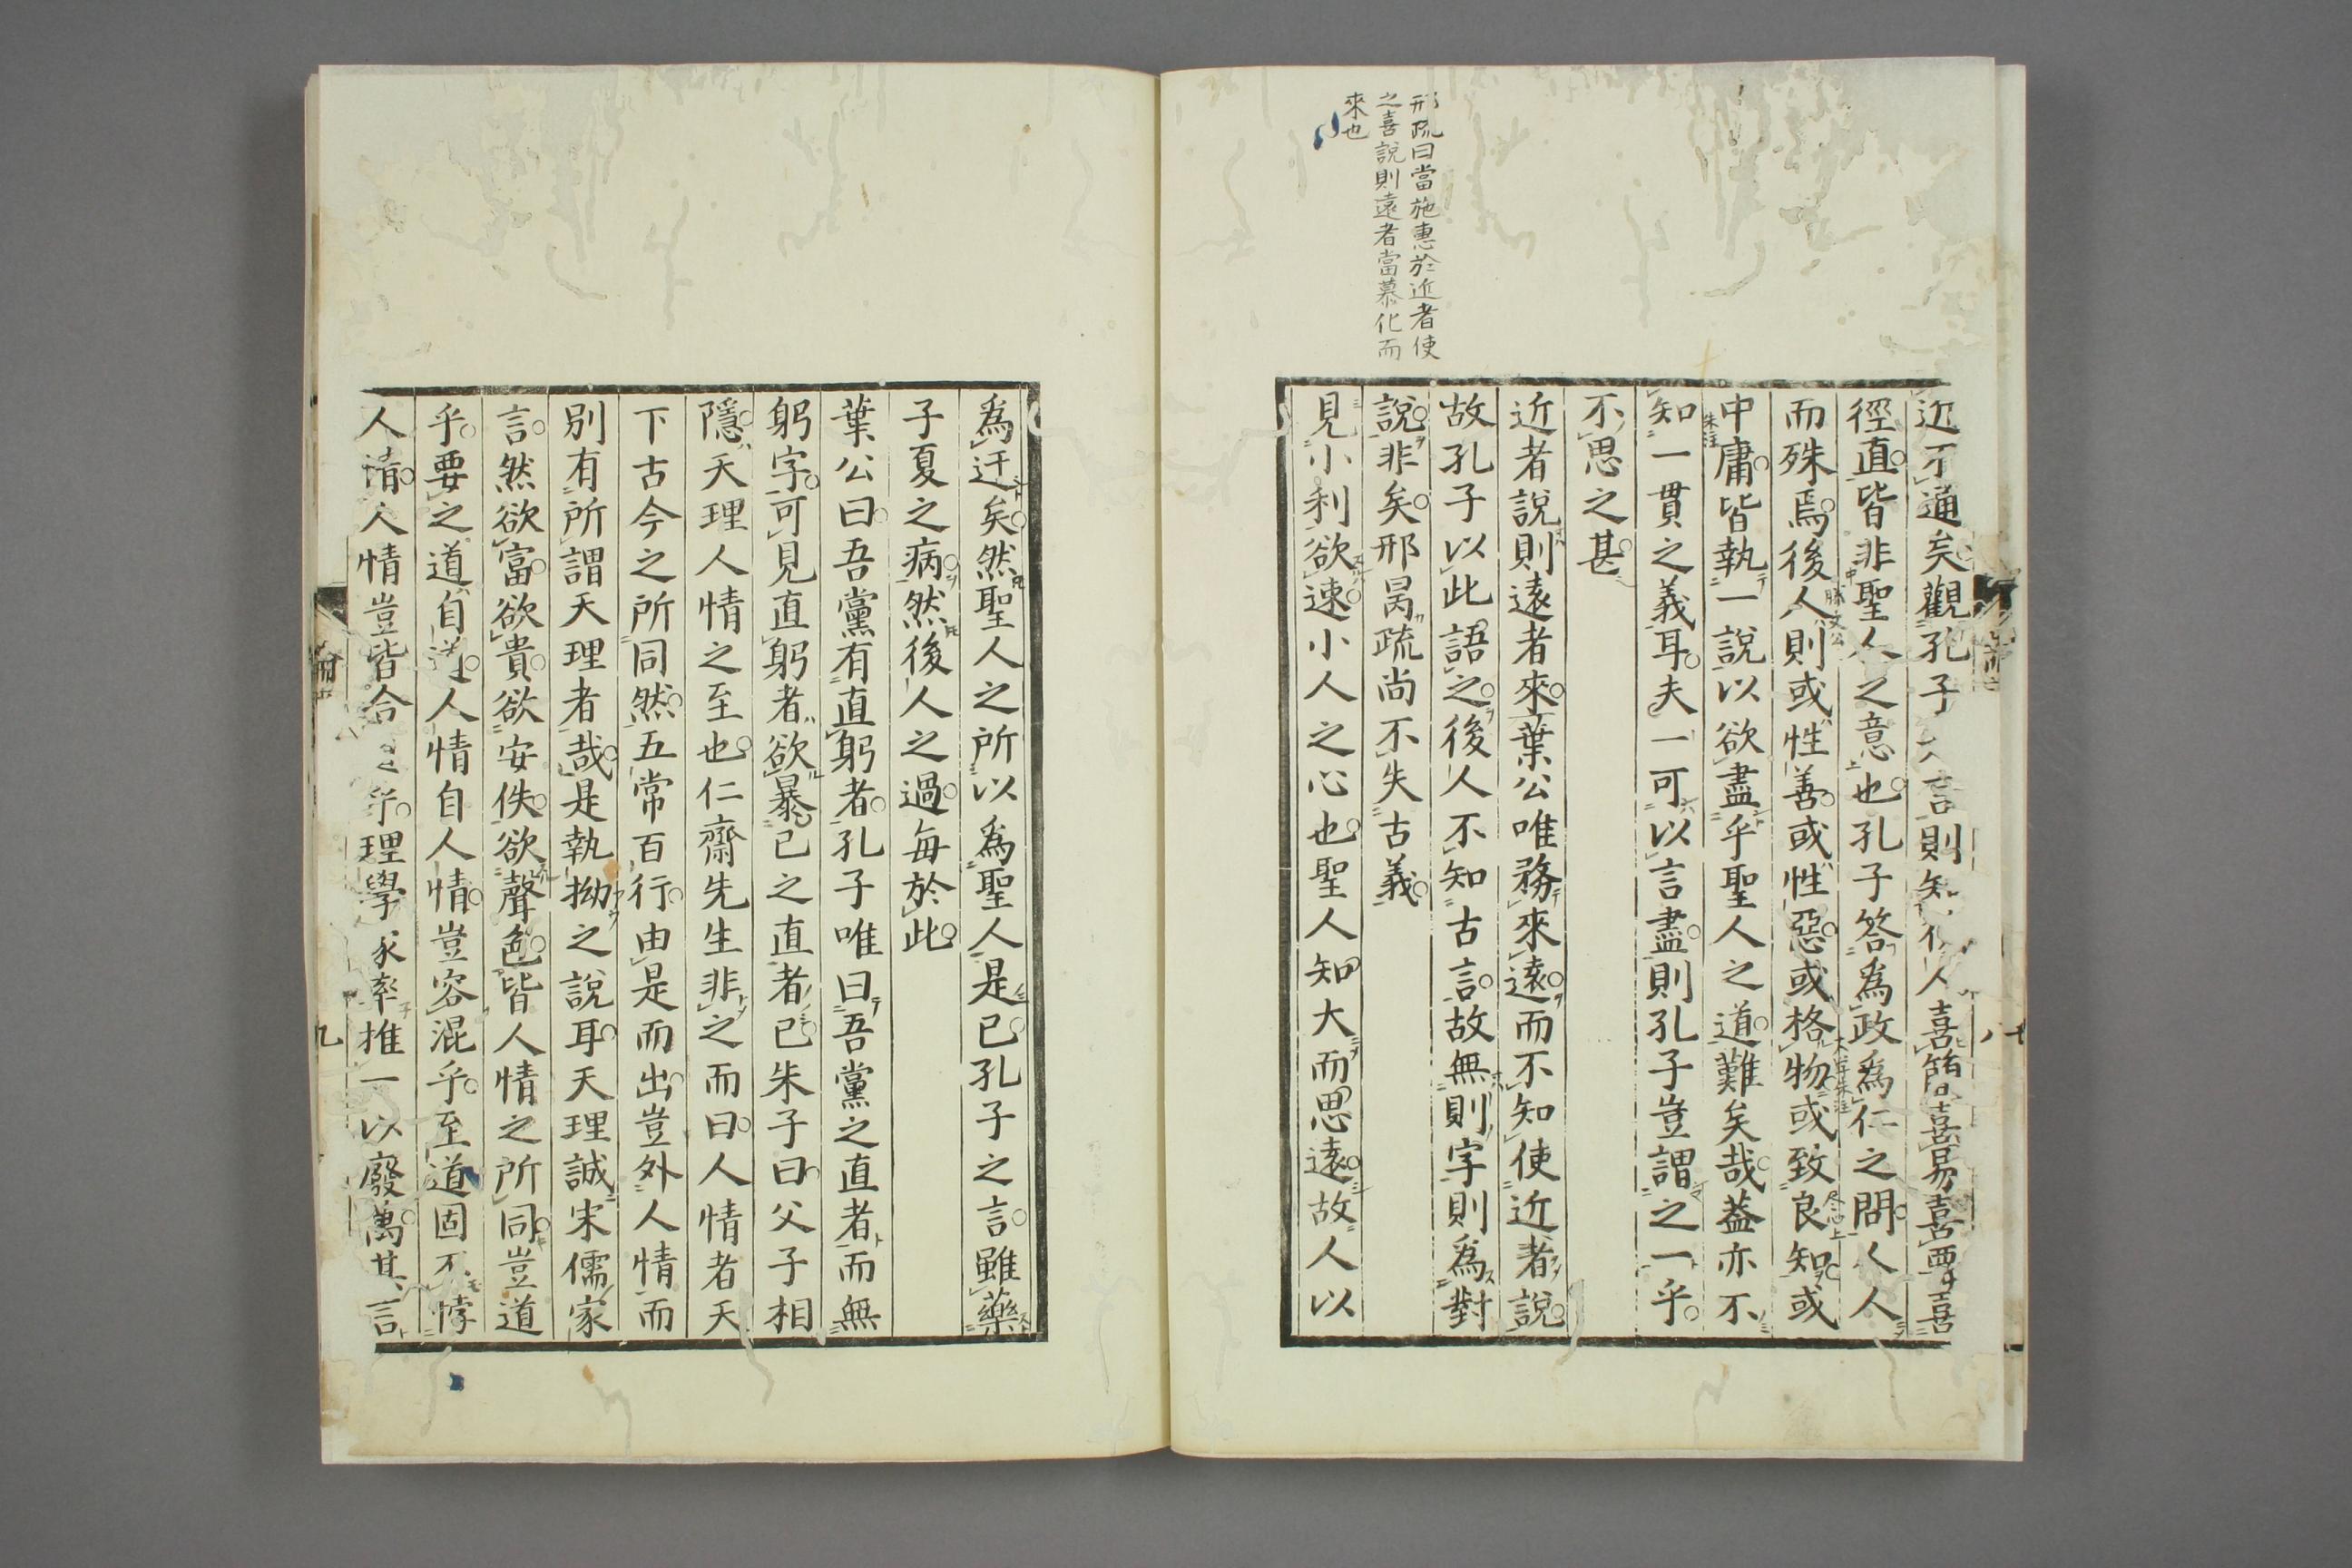 邢疏曰當施惠於近者使
之喜說則遠者當慕化而
來也
近不通矣觀孔子之言則知人喜簡喜易喜要喜
徑直皆非聖人之意也孔子答爲政爲仁之問人人
而殊焉後人則或性善或性惡或格物或致良知或
中庸皆執一說以欲盡乎聖人之道難矣哉葢亦不
知一貫之義耳夫一可以言盡則孔子豈謂之一乎
不思之甚
近者說則遠者來葉公唯務來遠而不知使近者說
故孔子以此語之後人不知古言故無則字則爲對
說非矣邢昺疏尚不失古義
見小利欲速小人之心也聖人知大而思遠故人以
爲迂矣然聖人之所以爲聖人是已孔子之言雖藥
子夏之病然後人之過每於此
葉公曰吾黨有直躬者孔子唯曰吾黨之直者而無
躬字可見直躬者欲暴己之直者已朱子曰父子相
隱天理人情之至也仁齋先生非之而曰人情者天
下古今之所同然五常百行由是而出豈外人情而
別有所謂天理者哉是執拗之說耳天理誠宋儒家
言然欲富欲貴欲安佚欲聲色皆人情之所同豈道
乎要之道自道人情自人情豈容混乎至道固不悖
人情人情豈皆合乎理學家率推一以廢萬其言
九